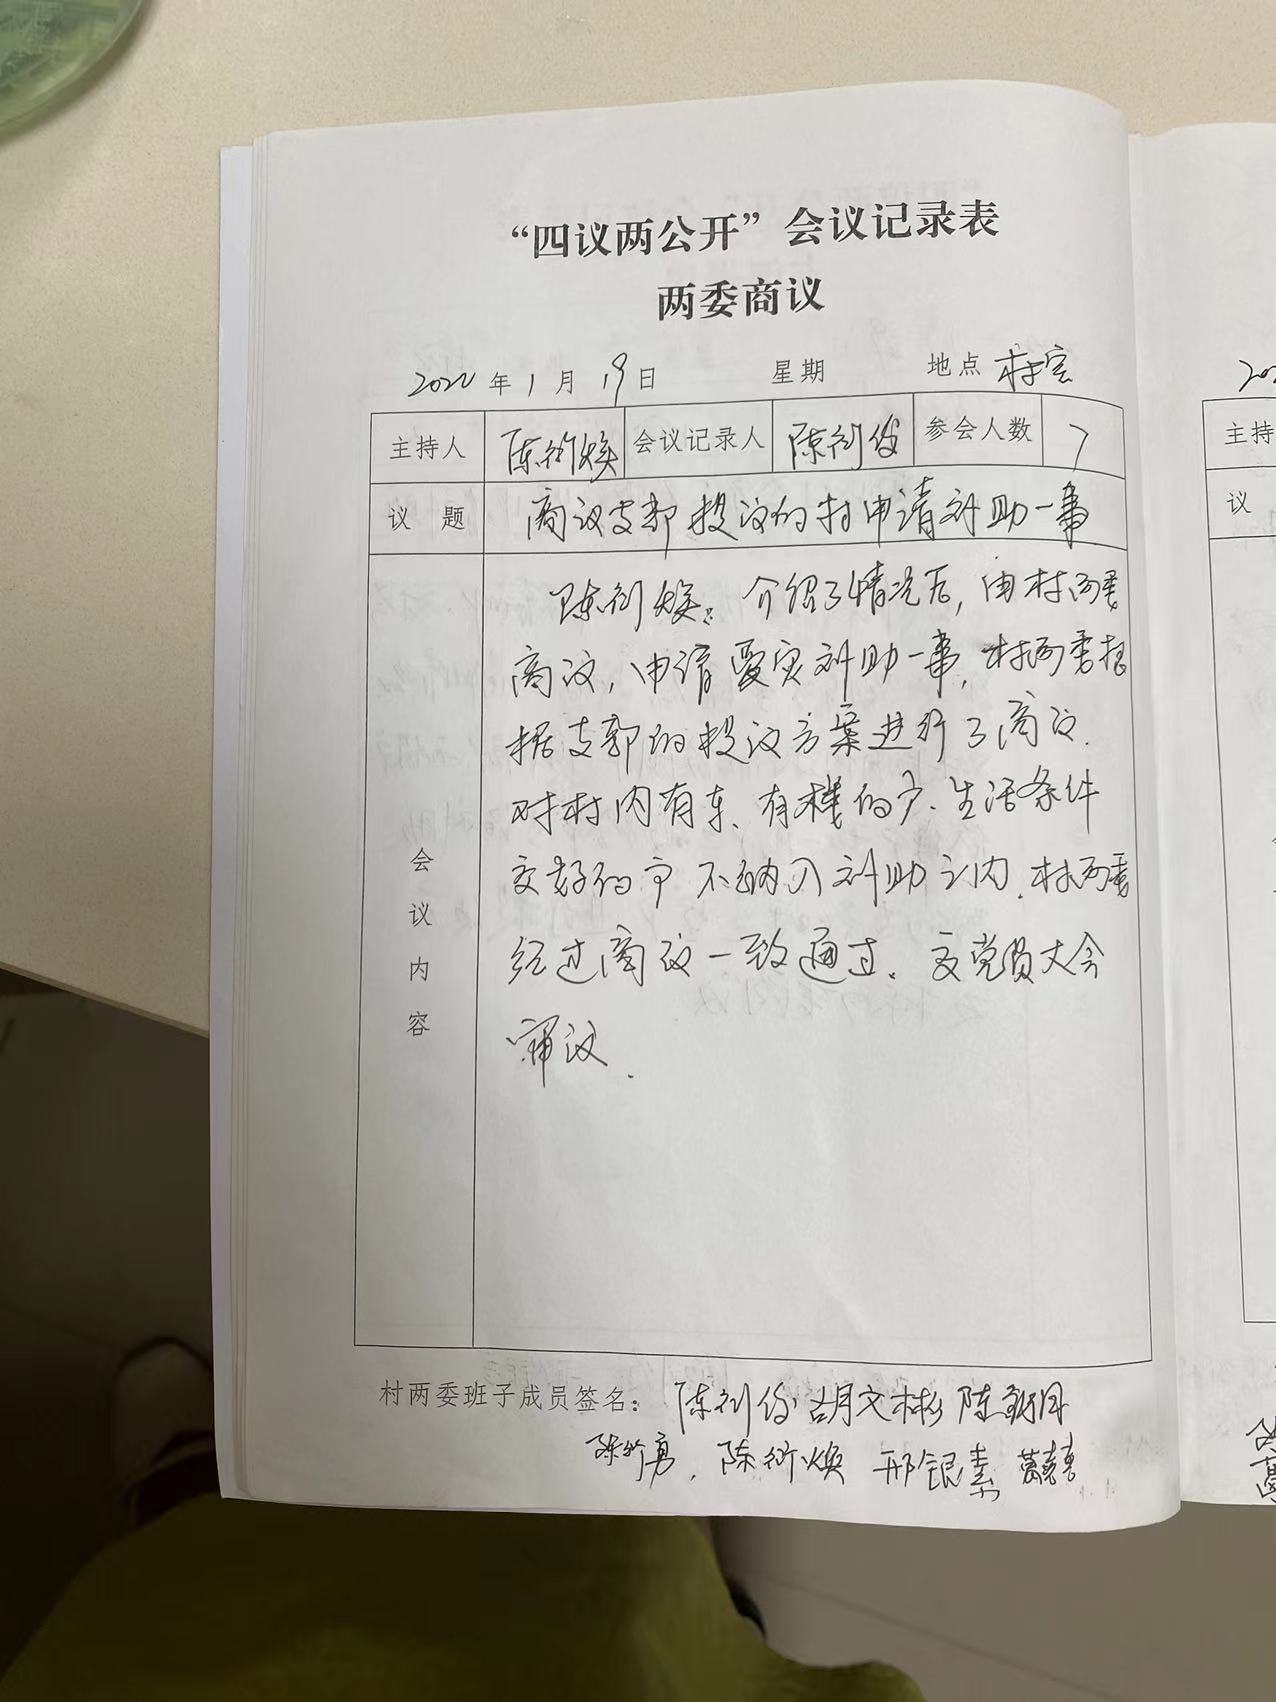 “四议两公开”会议记录表
两委商议
2022年1月19日 星期 地点 村室
主持人 陈衍焕 会议记录人 陈衍俊 参会人数 7
议 题 商议支部提议的村申请补助一事
陈衍焕: 介绍了情况后, 由村两委
商议, 申请受灾补助一事, 村两委根
据支部的提议方案进行了商议.
对村内有车、有楼的户、生活条件
交好的户不纳入补助之内. 村两委
经过商议一致通过. 交党员大会
审议.
会议内容
村两委班子成员签名: 陈衍俊 胡文彬 陈新月
陈衍勇. 陈衍焕 邢银素
202
主持
议